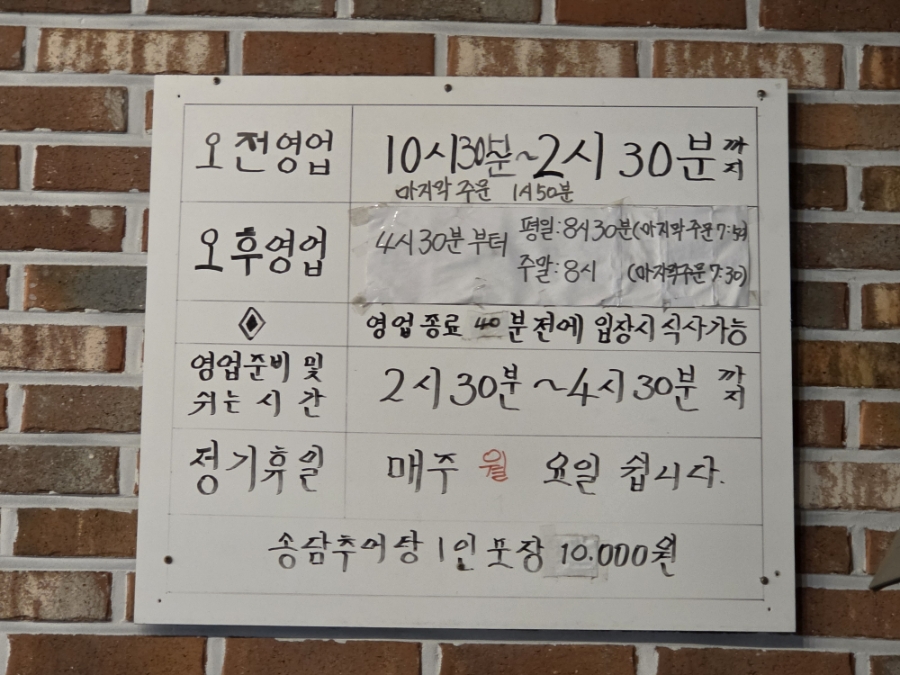 오전영업 10시30분~2시 30분까지
마지막 주문 1시50분
오후영업 4시30분부터 평일:8시30분(마지막주문7:50)
주말:8시 (마지막주문7:30)
영업종료 40분전에 입장시 식사가능
영업준비 및
쉬는 시간 2시30분~4시30분 까지
정기휴일 매주 월 요일 쉽니다.
송담추어탕 1인 포장 10.000원